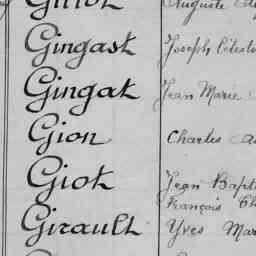 Auguste
Gingast Joseph Célest
Gingat Jean Marie
Gion Charles
Giot Jean Bapt
François Ch
Girault Yves Mar